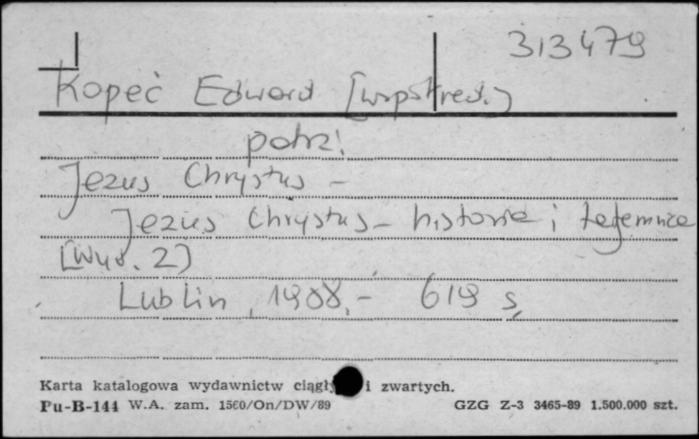 313479
Kopeć Edward [współred.]
patrz:
Jezus Chrystus -
Jezus Chrystus - historia i tajemnica
[Wyd. 2]
Lublin, 1988. - 619 s.
Karta katalogowa wydawnictw ciągły i zwartych.
Pu-B-144 W.A. zam. 1560/On/DW/89 GZG Z-3 3465-89 1.500.000 szt.